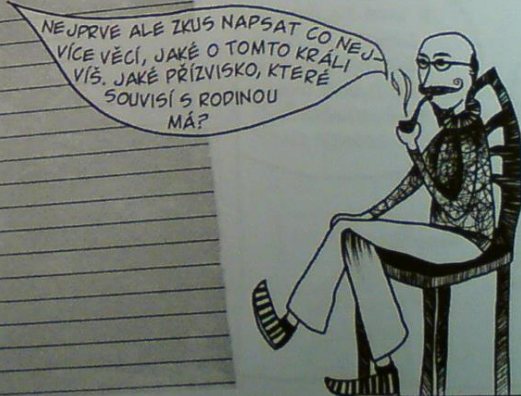 NEJPRVE ALE ZKUS NAPSAT CO NEJ-
VÍCE VĚCÍ, JAKÉ O TOMTO KRÁLI
VÍŠ. JAKÉ PŘÍZVISKO, KTERÉ
SOUVISÍ S RODINOU
MÁ?